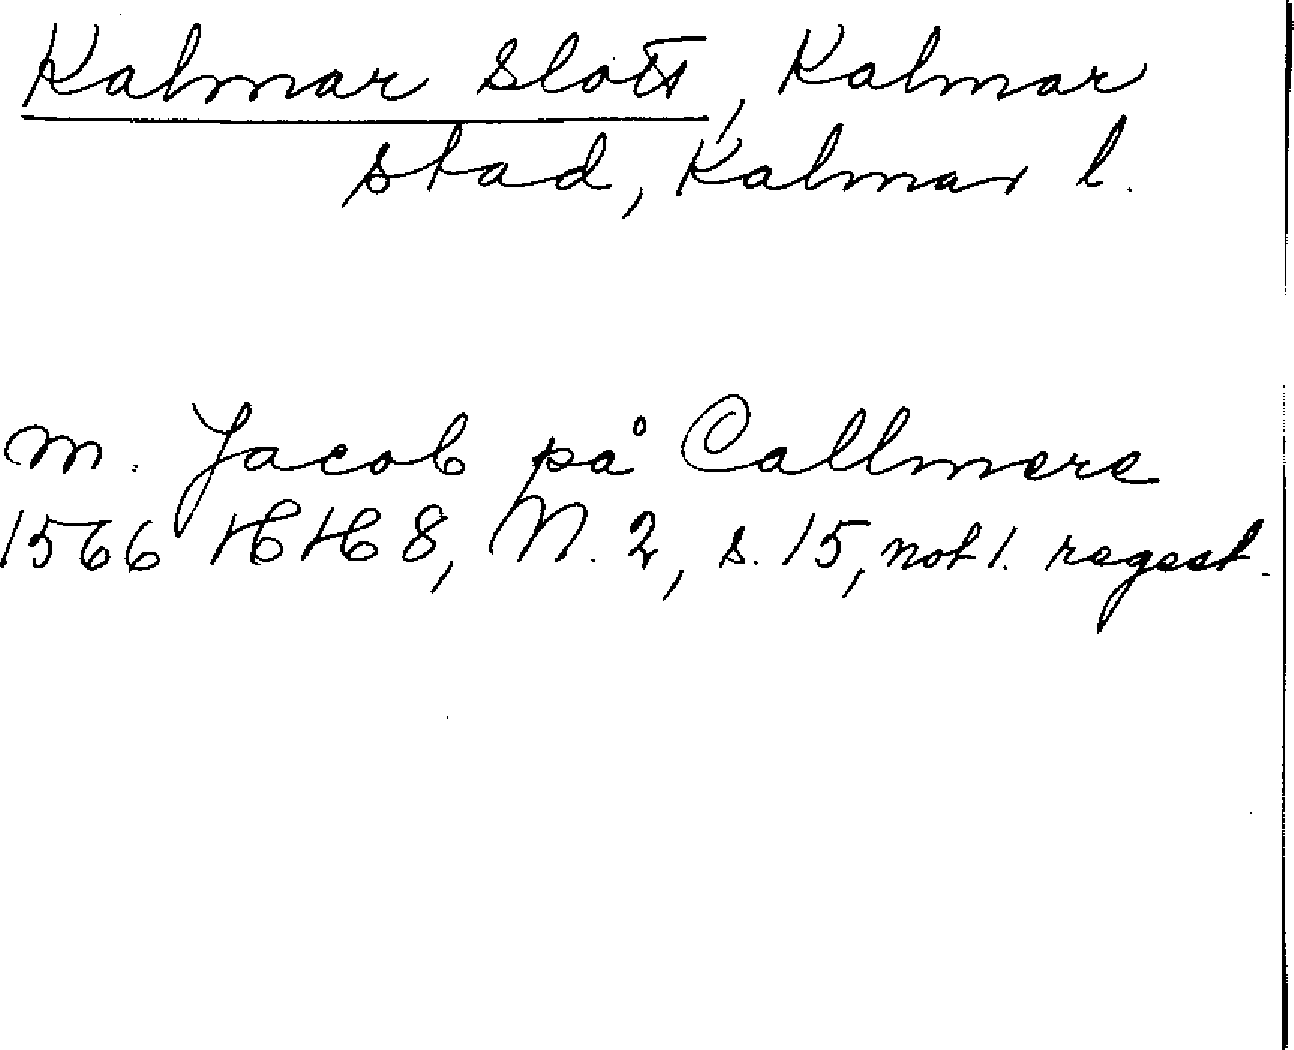 Kalmar slott, Kalmar
stad, Kalmar l.
m. Jacob på Callmere
1566 HH 8, N. 2, s. 15, not 1. regest.